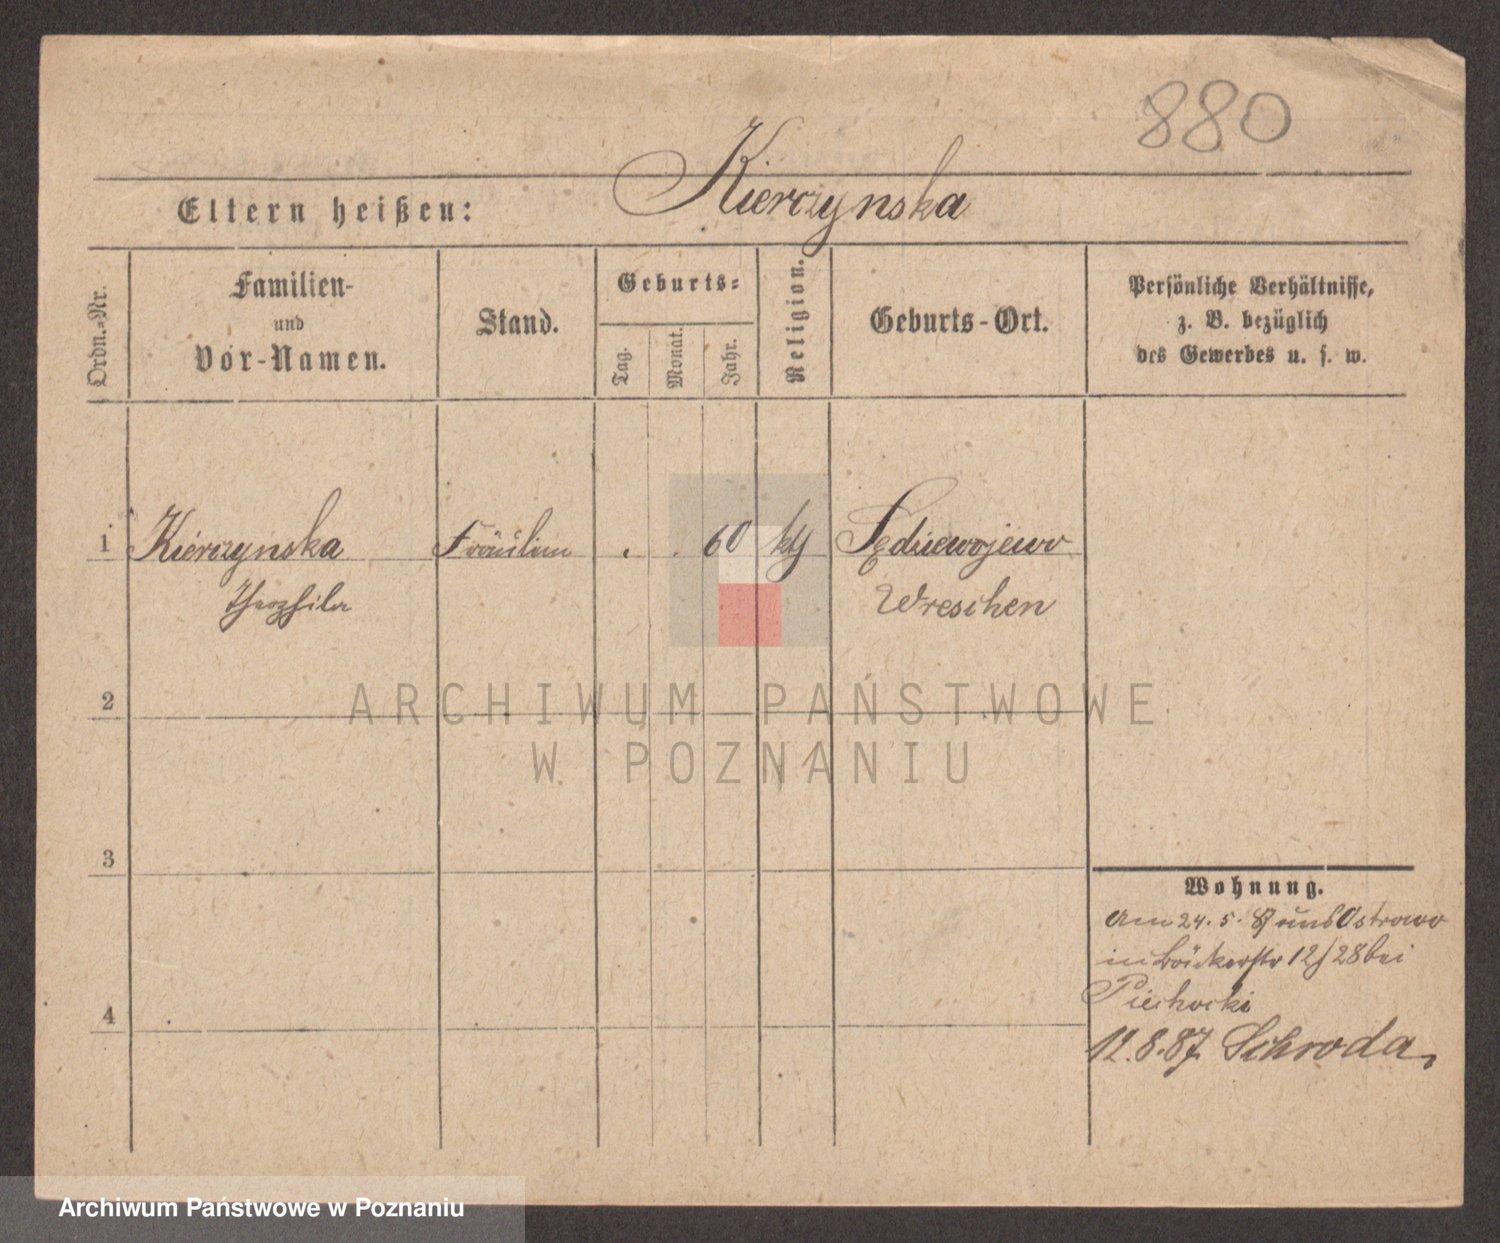 880
Kierczynska
Eltern heißen:
Ordn.-Nr.
Familien-
und
Vor-Namen.
Stand.
Geburts-
Tag.
Monat.
Jahr.
Religion.
Geburts-Ort.
Persönliche Verhältnisse,
z. B. bezüglich
des Gewerbes u. s. w.
1 Kierczynska Fräulein . . 60 kth Sędziewojewo
Theophila Wreschen
2
ARCHIWUM PAŃSTWOWE
W POZNANIU
3
Wohnung.
am 24. 5. 87 aus Ostrowo
in Bäckerstr 12/28 bei
Piechocki
4
12.8.87. Schroda,
Archiwum Państwowe w Poznaniu